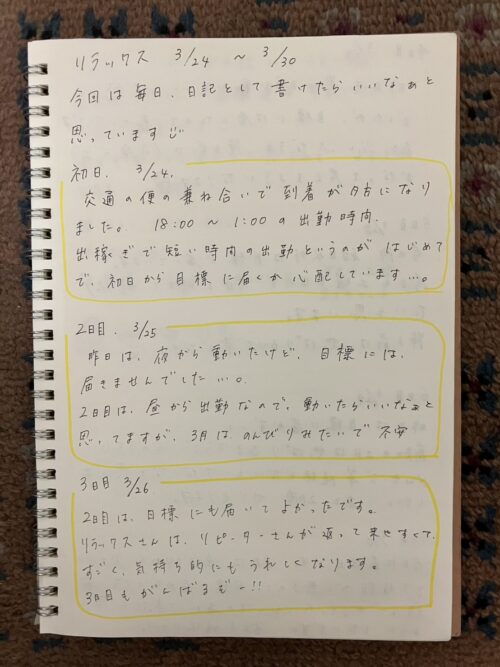 リラックス 3/24 ～ 3/30
今回は毎日、日記として書けたらいいなぁと
思っています
初日、 3/24、
交通の便の兼ね合いで到着が夕古になり
ました。 18:00 ～ 1:00の出勤時間、
出稼ぎで短い時間の出勤というのが はじめて
で、初日から目標に届くか心配しています…。
2日目、 3/25
昨日は、夜から働いたけど、目標には、
届きませんでした…。
2日目は、昼から出勤なので、働いたらいいなぁと
思ってますが、3月はのんびりみたいで不安
3日目 3/26
2日目は、目標にも届いてよかったです。
リラックスさんは、リピーターさんが返って来やすくて、
すごく、気持ち的にもうれしくなります。
3日目もがんばるぞー!!